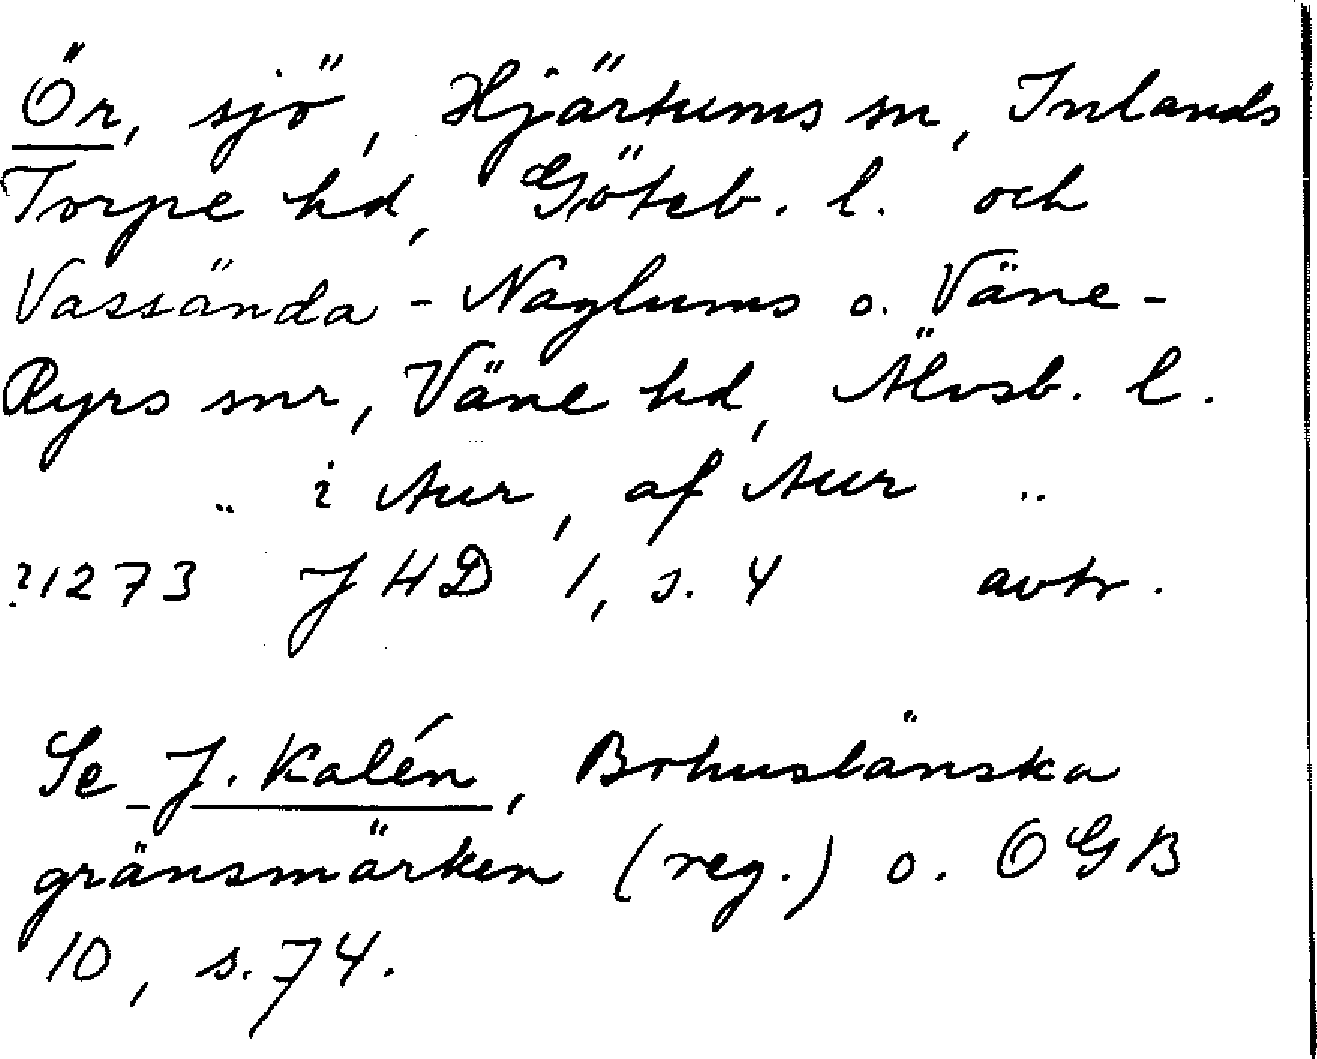 Ör, sjö, Hjärtums sn, Inlands
Torpe hd, Göteb. l. och
Vassända - Naglums o. Väne-
Ryrs snr, Väne hd, Älvsb. l.
" i Aur, af Aur "
?1273 JHD 1, s. 4 avtr.
Se J. Kalén, Bohuslänska
gränsmärken (reg.) o. OGB
10, s. 74.